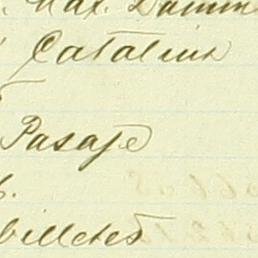 Max. Damm
Catalina
Pasaje
billetes